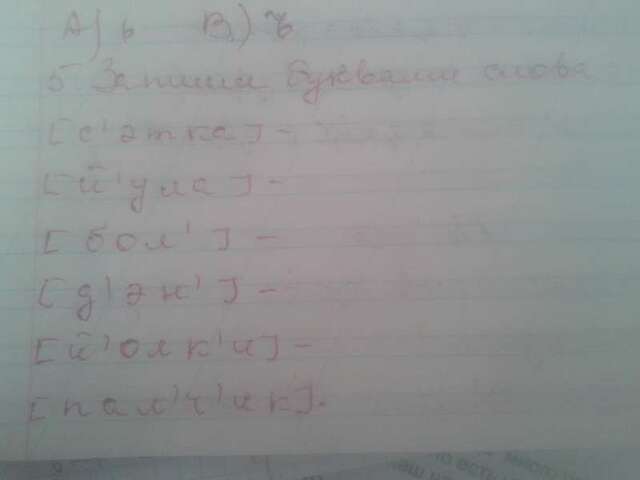 А) ь В) ъ
5 Запиши буквами слова
[с'этка] -
[й'ула] -
[бол'] -
[д'эн'] -
[й'олк'и] -
[пал'ч'ик].